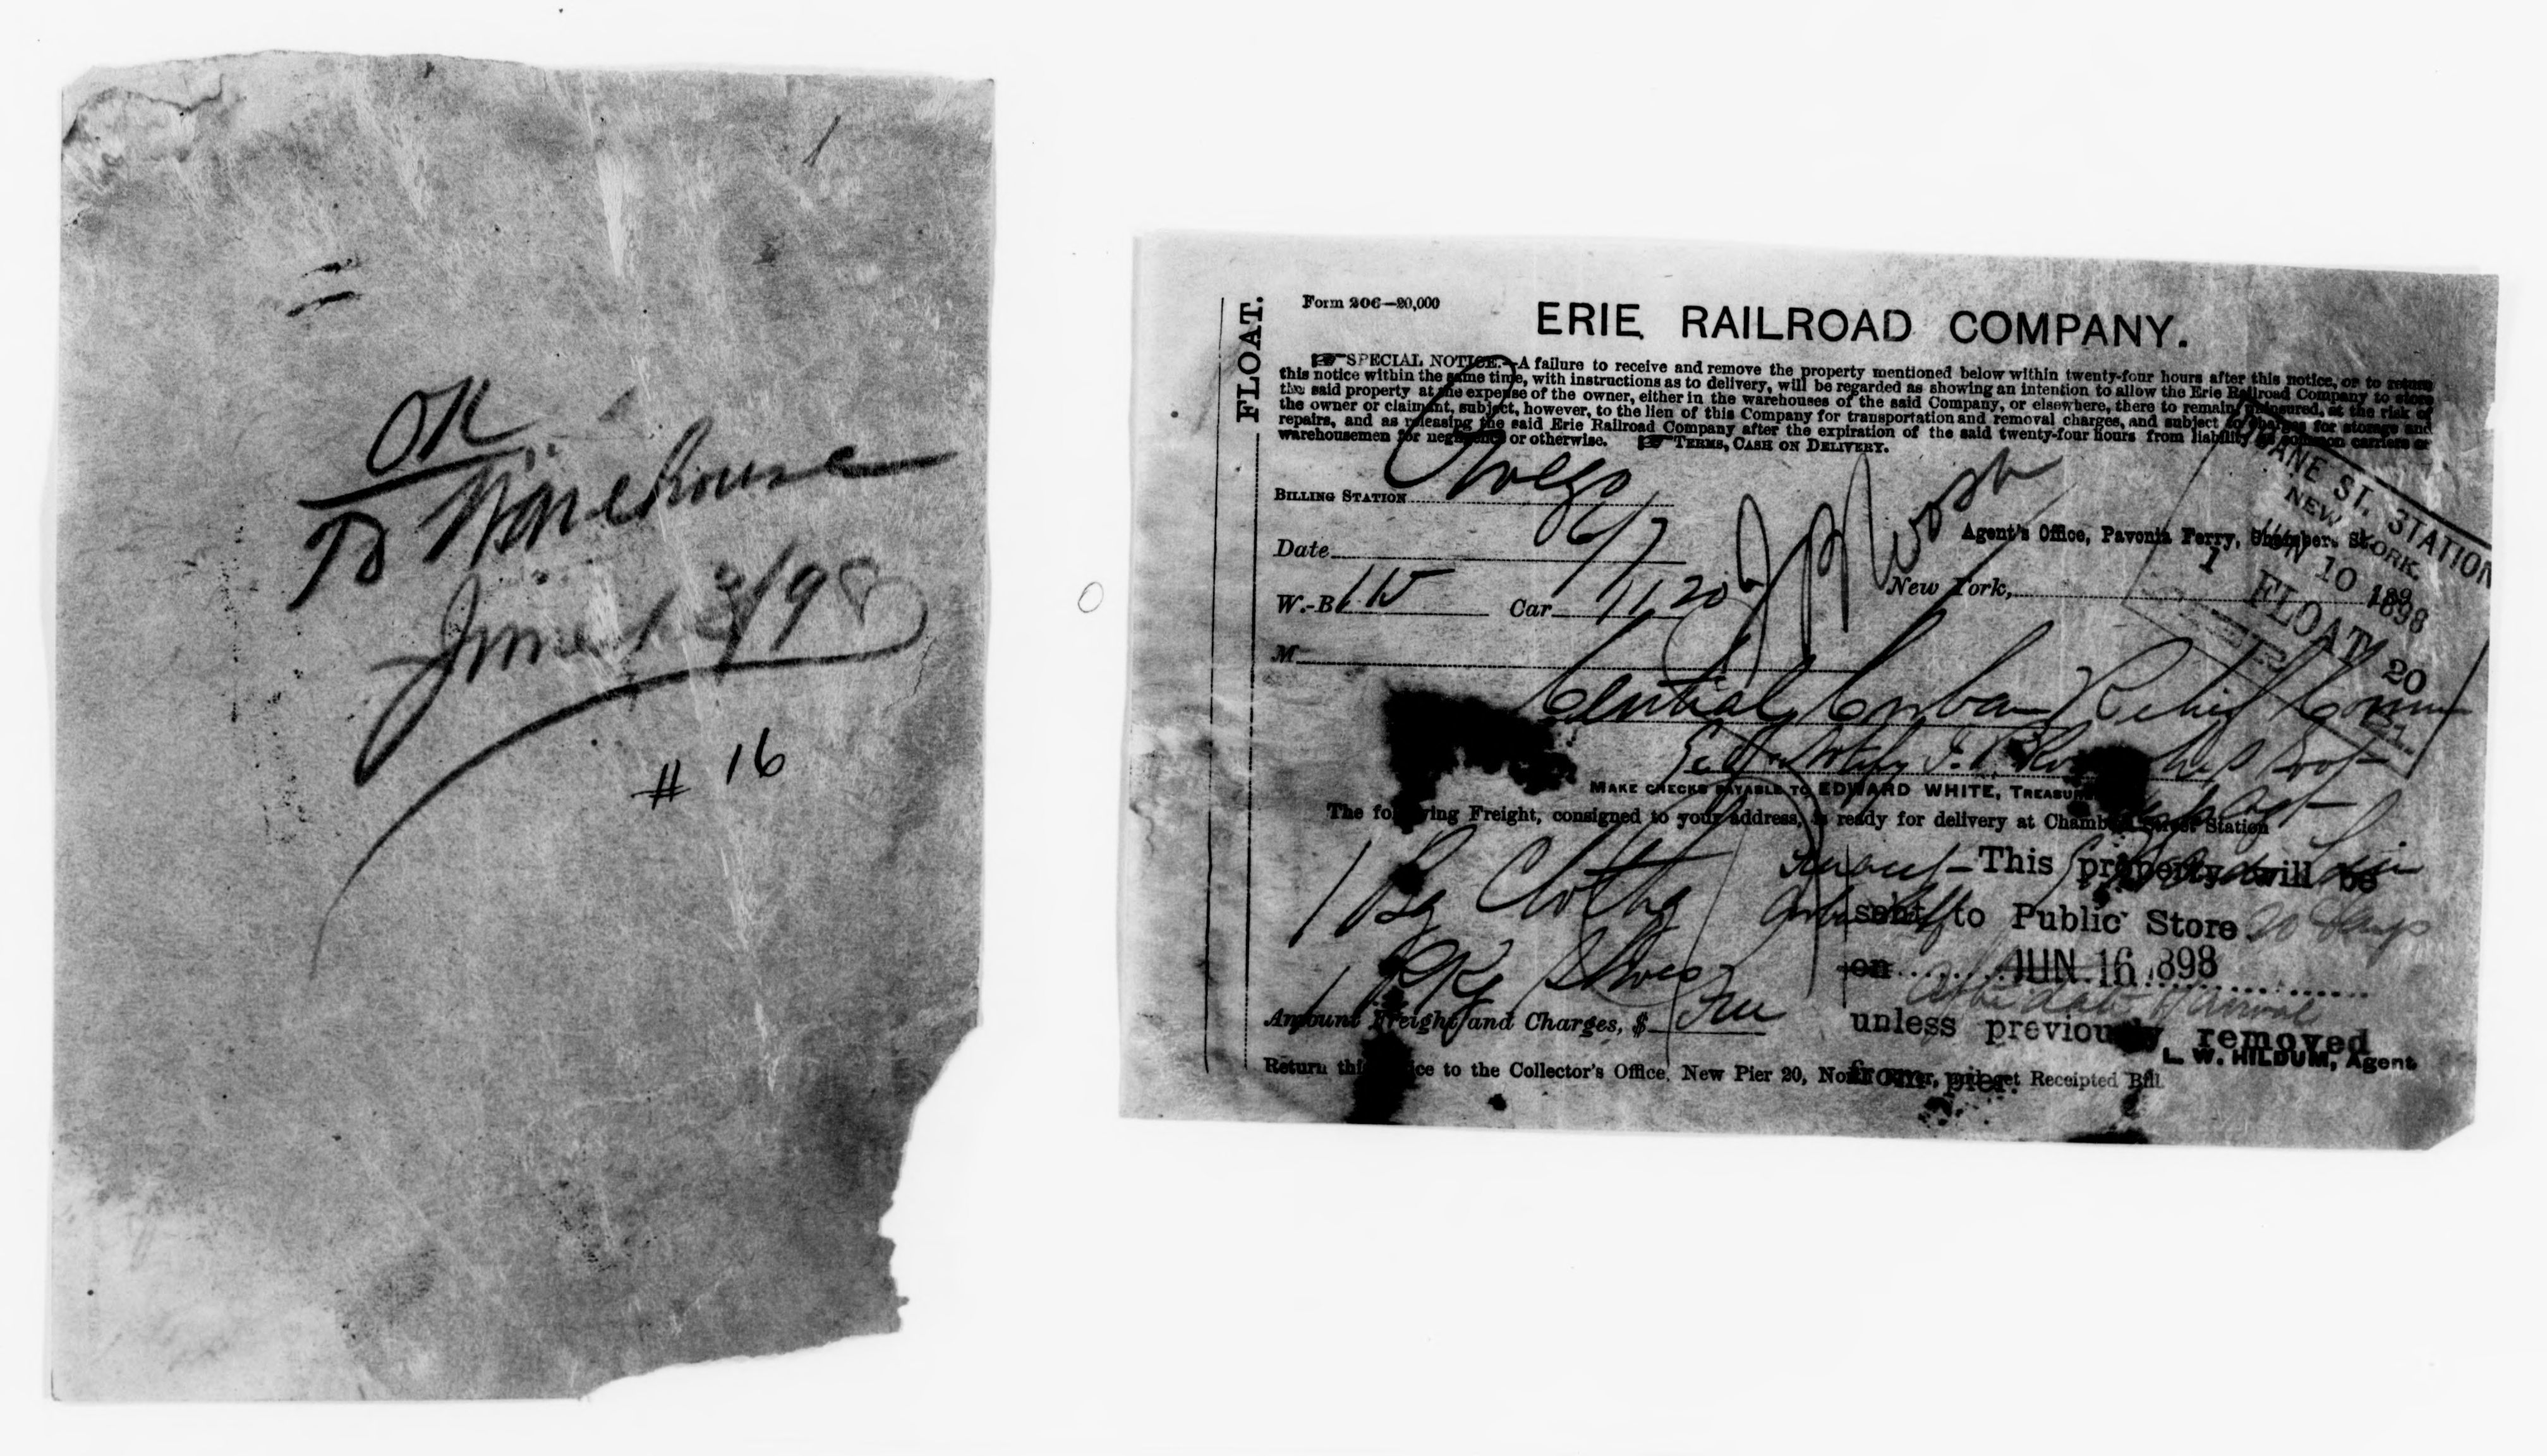 OK
To Warehouse
June 13/98
# 16
FLOAT.
Form 206—20,000
ERIE RAILROAD COMPANY.
SPECIAL NOTICE.—A failure to receive and remove the property mentioned below within twenty-four hours after this notice, or to return
this notice within the same time, with instructions as to delivery, will be regarded as showing an intention to allow the Erie Railroad Company to store
the said property at the expense of the owner, either in the warehouses of the said Company, or elsewhere, there to remain, uninsured, at the risk of
the owner or claimant, subject, however, to the lien of this Company for transportation and removal charges, and subject to charges for storage and
repairs, and as releasing the said Erie Railroad Company after the expiration of the said twenty-four hours from liability as common carriers or
warehousemen for negligence or otherwise. TERMS, CASH ON DELIVERY.
BILLING STATION Owego
Date 6/7
Agent's Office, Pavonia Ferry, Chambers St.
W.-B. 115 Car 11205
New York, 189
ST. STATION
NEW YORK.
JUN 10 1898
1 FLOAT 20
M
Central Cuban Relief Comm
MAKE CHECKS PAYABLE TO EDWARD WHITE, TREASURER
The following Freight, consigned to your address, is ready for delivery at Chambers Street Station
1 Bg Clothg
1 Pkg Shoes
This property will be
sent to Public Store
20 days
on JUN 16 1898
unless previously removed
from pier.
Amount Freight and Charges, $ Free
L. W. HILDUM, Agent
Return this notice to the Collector's Office, New Pier 20, North River, and get Receipted Bill